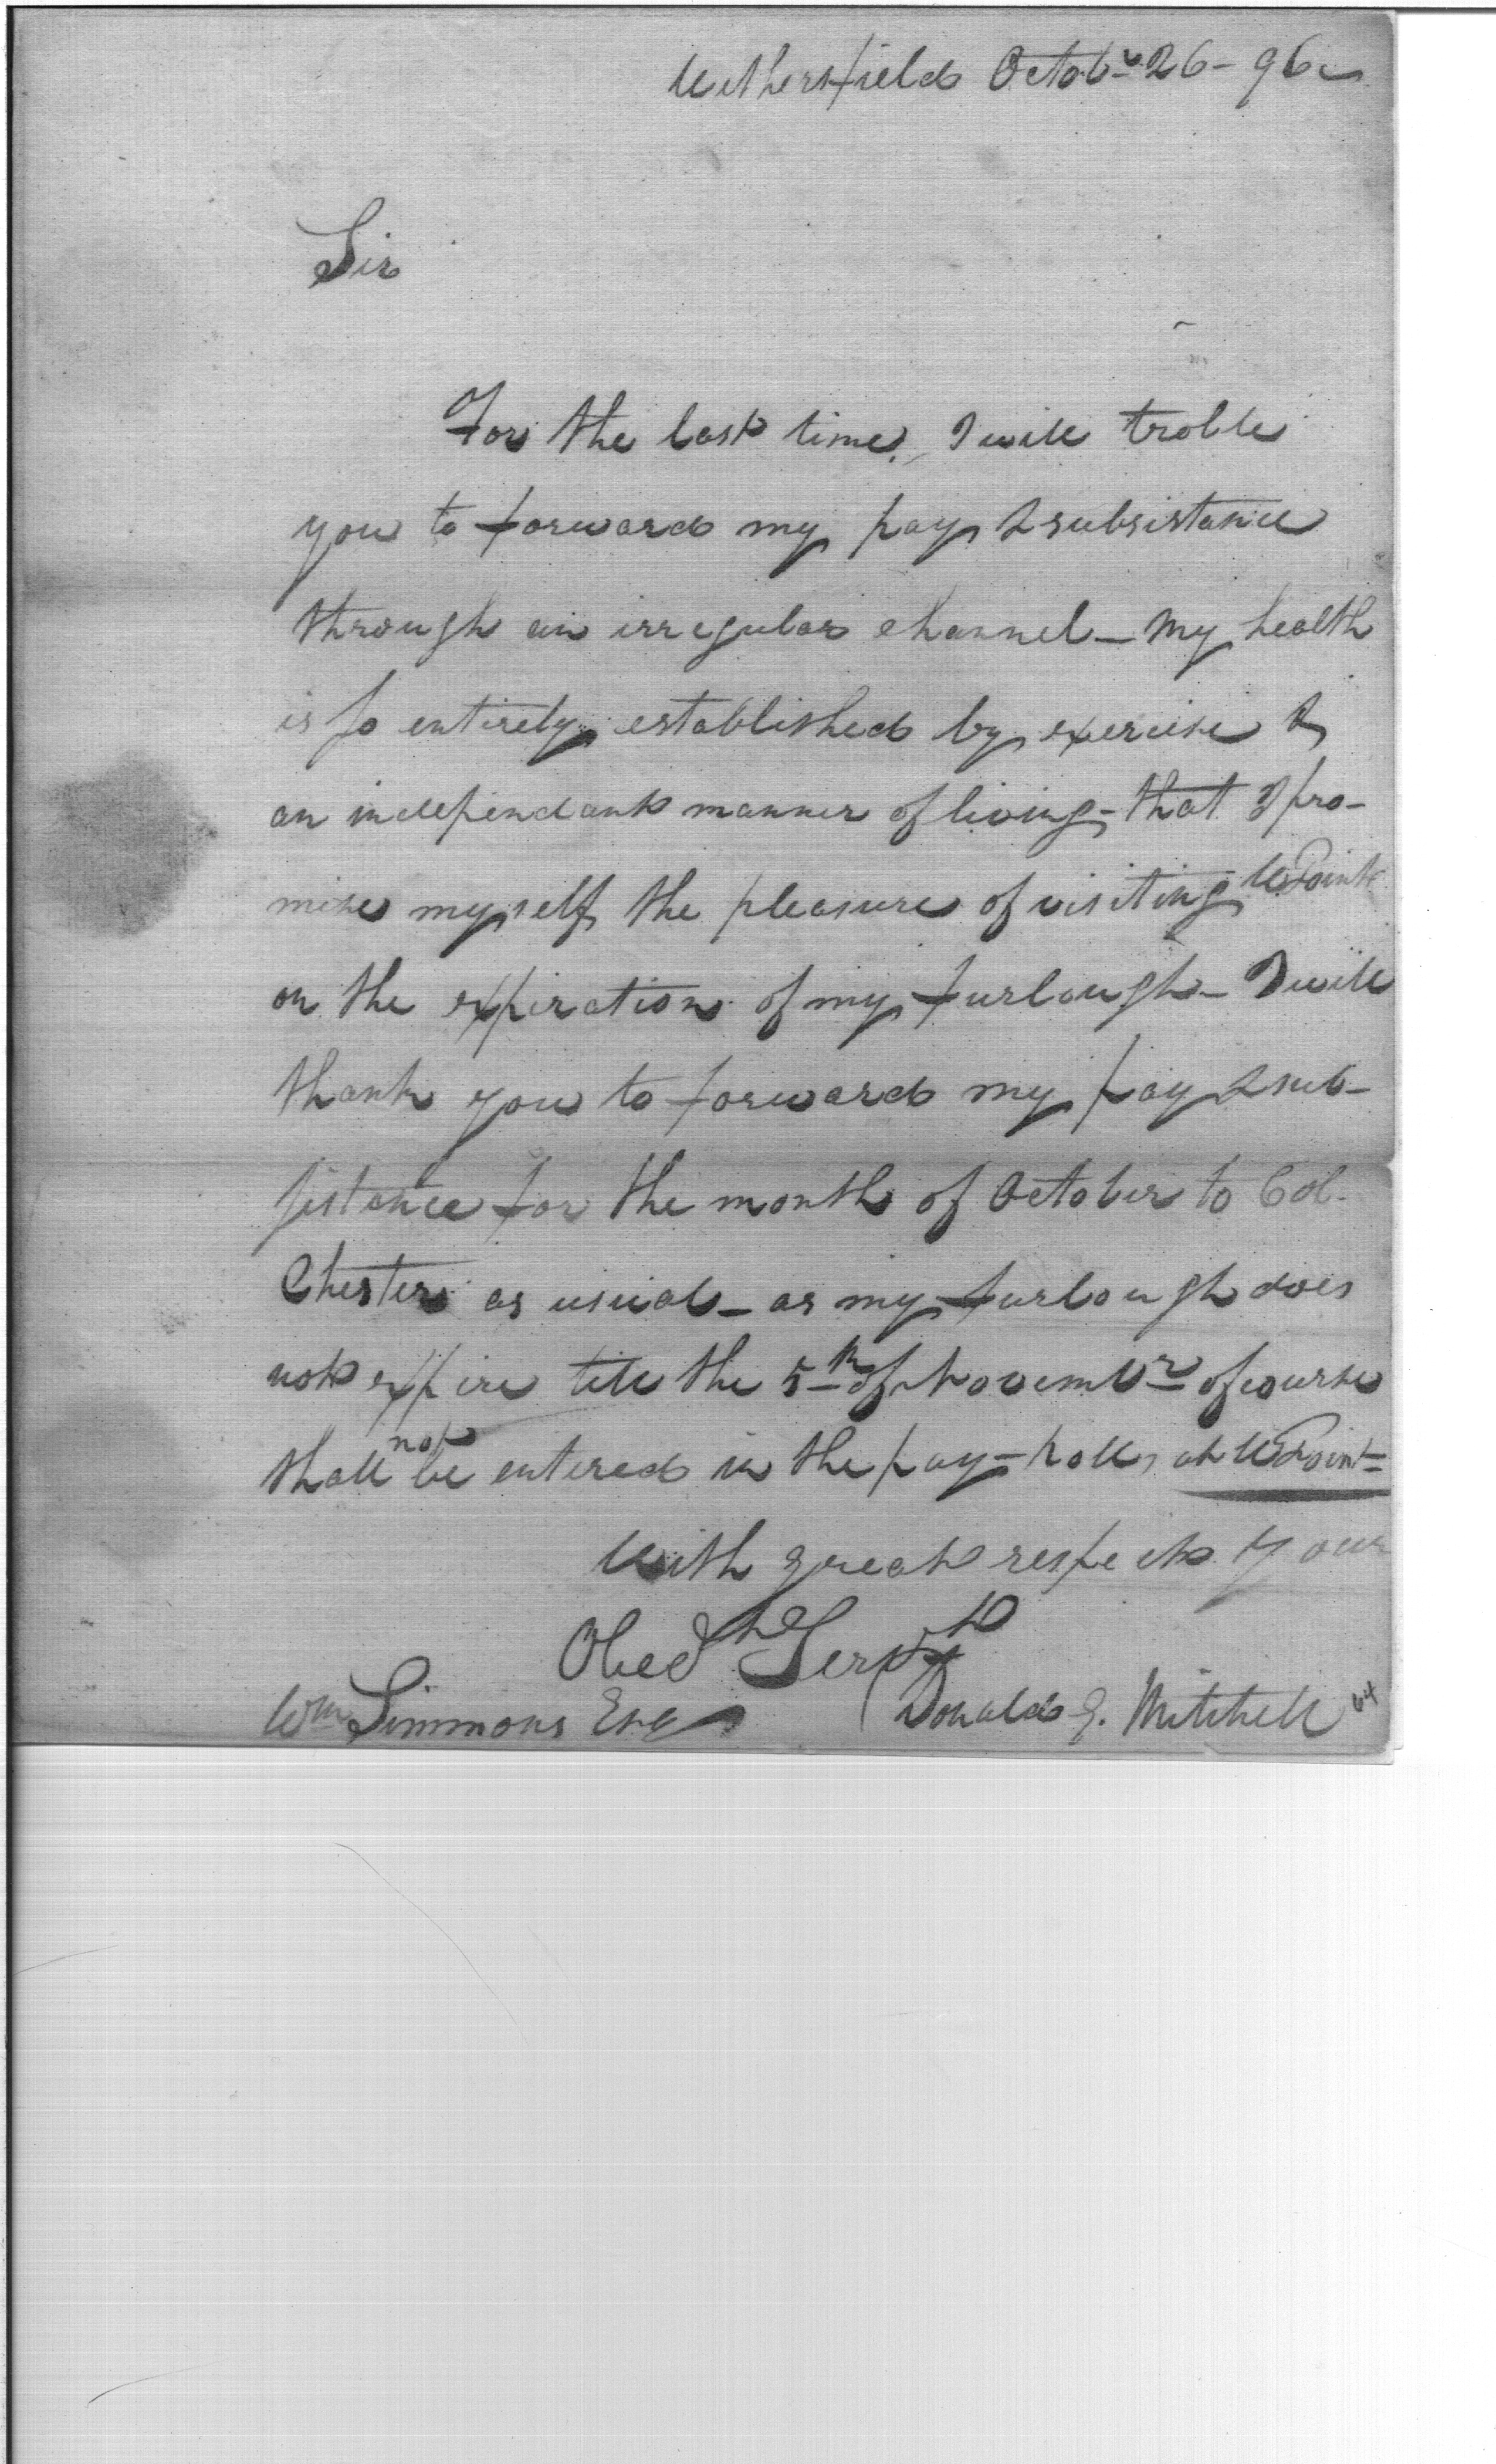 Wethersfield Octobr 26 - 96
Sir
For the last time, I will troble
you to forward my pay & subsistance
through an irregular channel - My health
is so entirely established by exercise &
an independant manner of living - that I pro-
mise myself the pleasure of visiting W Point
on the expiration of my furlough - I will
thank you to forward my pay & sub-
sistance for the month of October to Col.
Chester as usual - as my furlough does
not expire till the 5th of Novembr of course
shall not be entered in the pay-roll, at W Point -
With great respect Your
Obedt Servt
Wm Simmons Esq Donald G. Mitchell